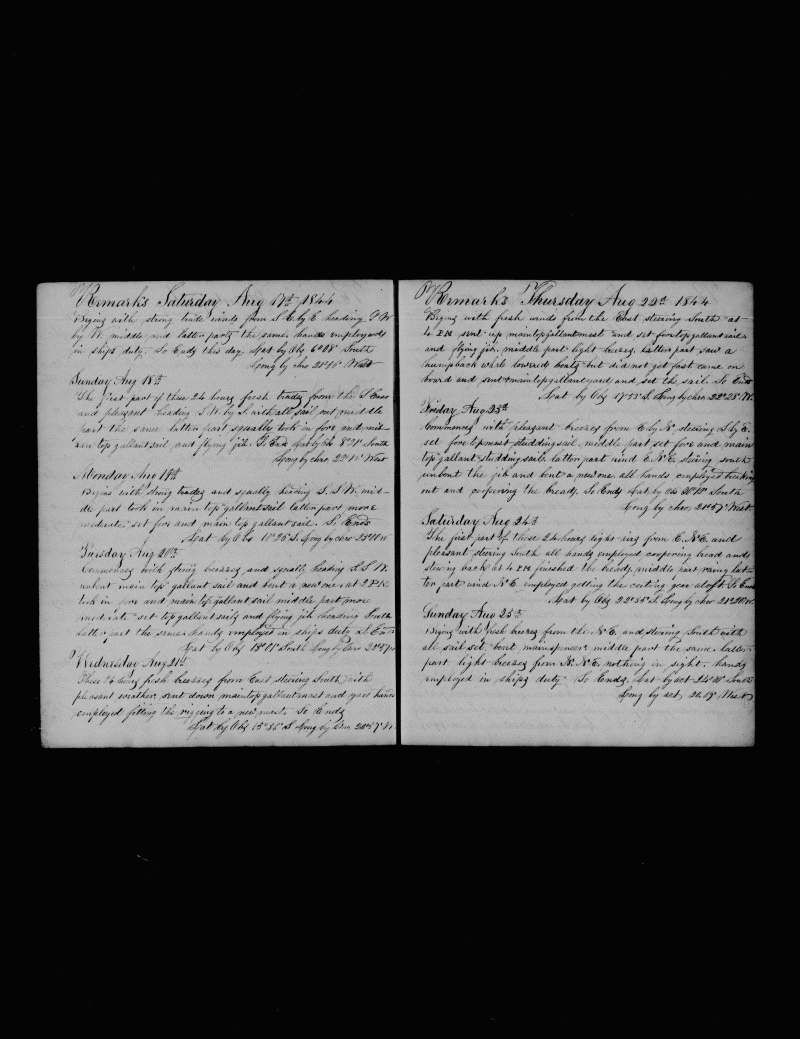 Remarks Saturday Aug 17th 1844
Begins with strong trade winds from S E by E heading S W
by W. middle and latter parts the same. hands employed
in ships duty. So Ends this day. Lat by Obs 6°08' South
Long by chro 21° West
Sunday Aug 18th
The first part of these 24 hours fresh trades from the S East
and pleasant heading S W by S. with all sail out middle
part the same latter part squally took in fore and miz-
zen top gallant sail, and flying jib. So Ends Lat by Obs 8° South
Long by chro, 22° West
Monday Aug 19th
Begins with strong trades and squally heading S. S. W. mid-
dle part took in main top gallant sail latter part more
moderate set fore and main top gallant sail. So Ends
Lat by Obs S. Long by chro W
Tuesday Aug 20th
Commences with strong breezes and squally heading S.S.W.
unbent main top gallant sail and bent a new one. at 2 P.M.
took in fore and main top gallant sail middle part more
moderate set top gallant sails and flying jib heading South
latter part the same hands employed in ships duty So Ends
Lat by Obs South Long by Chro
Wednesday Aug 21st
These 24 hours fresh breezes from East steering South with
pleasant weather sent down main top gallant mast and gave hands
employed fitting the rigging to a new mast. So Ends
Lat by Obs S Long by Chro W.
Remarks Thursday Aug 22d 1844
Begins with fresh winds from the East steering South at
4 P M sent up main top gallant mast and set fore top gallant sail
and flying jib. middle part light breezes. Latter part saw a
humpback whale lowered boats but did not get fast came on
board and sent main top gallant yard and set the sail. So Ends
Lat by Obs 17°55' S. Long by chro. 22°28' W.
Friday Aug 23d
Commences with pleasant breezes from E by N. steering S by E.
set fore topmast studding sail. middle part set fore and main
top gallant studding sails. latter part wind E. N. E. steering south
unbent the jib and bent a new one. all hands employed breaking
out and coopering the bread. So Ends Lat by Obs South
Long by chro, 21°57' West
Saturday Aug 24th
The first part of these 24 hours light airs from E. N. E. and
pleasant steering South all hands employed coopering bread and
stowing back at 4 P M finished the bread, middle part rainy lat-
ter part wind N E employed getting the cutting gear aloft. So Ends
Lat by Obs 22°35' S. Long by chro W.
Sunday Aug 25th
Begins with fresh breezes from the N. E. and steering South with
all sail set, bent main spencer. middle part the same. latter
part light breezes from N. N. E. nothing in sight. hands
employed in ships duty So Ends. Lat by act South
Long by act, West